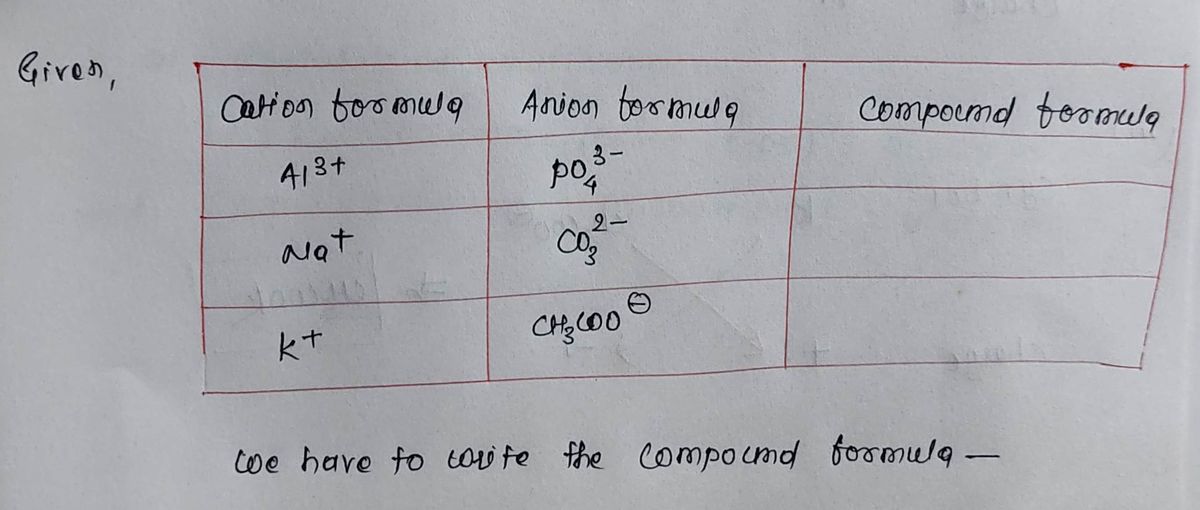 Given,
Cation formula Anion formula Compound formula
Al³⁺ PO₄³⁻
Na⁺ CO₃²⁻
K⁺ CH₃COO⊖
We have to write the compound formula —